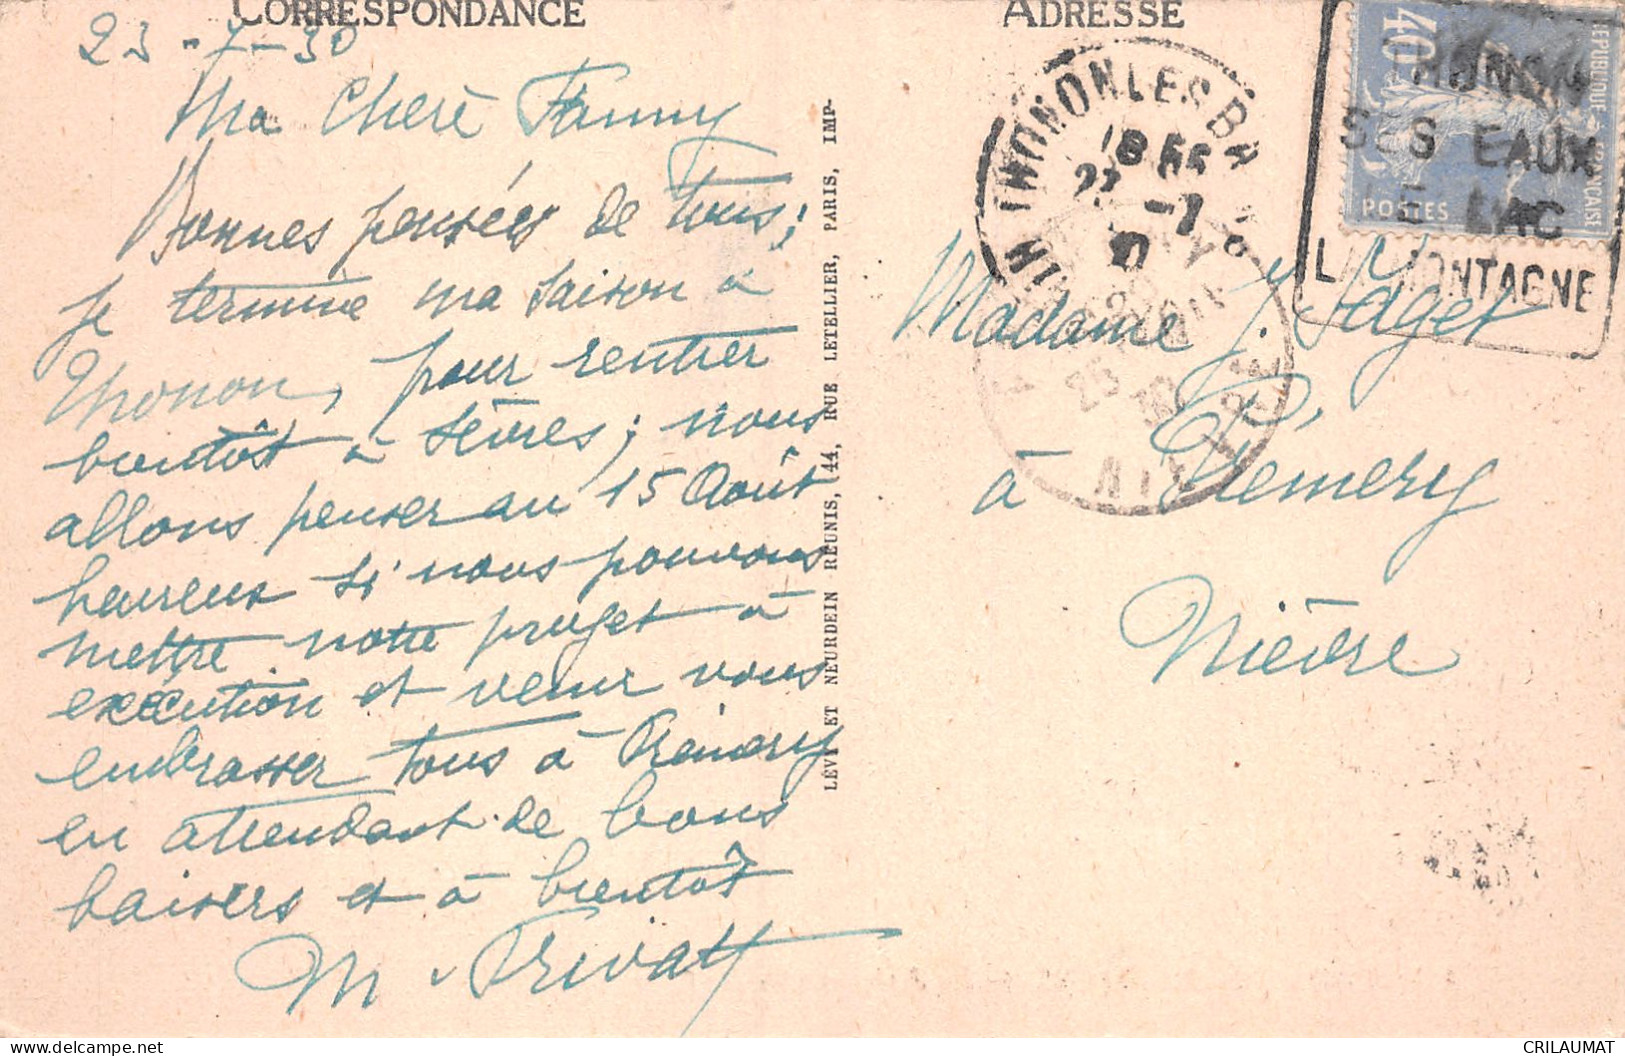 CORRESPONDANCE
23-7-30
Ma Chère Fanny
Bonnes pensées de tous;
je termine ma saison à
Thonon, pour rentrer
bientôt à Sèvres; nous
allons penser au 15 Août
heureux si nous pouvons
mettre notre projet à
exécution et venir vous
embrasser tous à Prémery
en attendant de bons
baisers et à bientôt
M. Privatt
LÉVY ET NEURDEIN RÉUNIS, 44, RUE LETELLIER, PARIS, IMP-
ADRESSE
THONON LES BA
18 55
-7
40
RÉPUBLIQUE FRANÇAISE
POSTES
THONON
SES EAUX
LE LAC
LA MONTAGNE
NIÈVRE
25
30
Madame J. Saget
à Prémery
Nièvre
CRILAUMAT